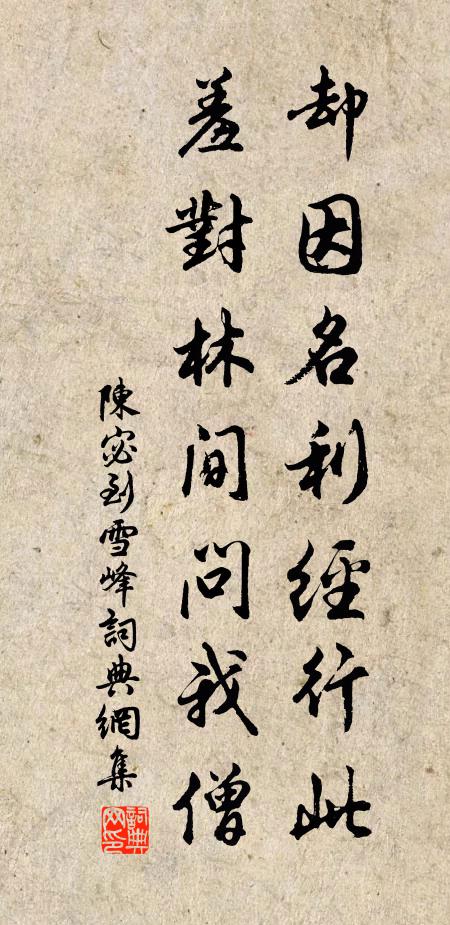 却因名利經行此
羞對林間問我僧
陳宓到雪峰詞典網集
詞典網印